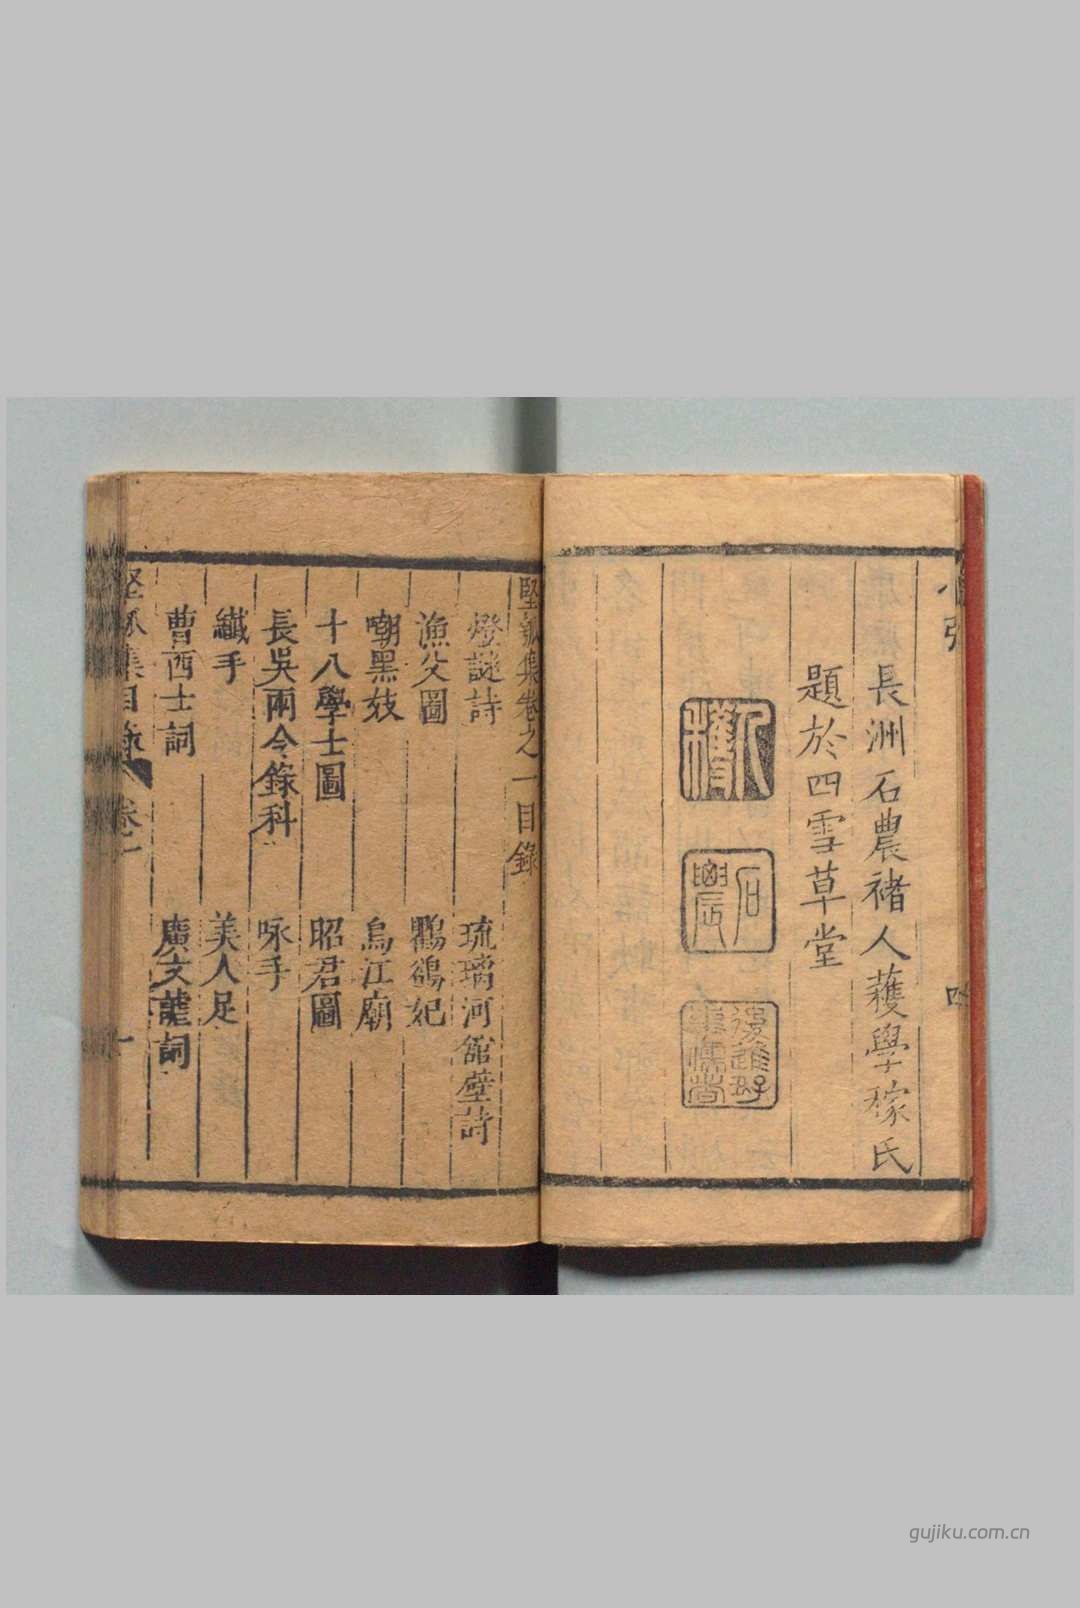 長洲石農褚人穫學稼氏
題於四雪草堂
人穫
石農
堅瓠集卷之一目錄
燈謎詩　琉璃河館壁詩
漁父圖　鸚鵡妃
嘲黑妓　烏江廟
十八學士圖　昭君圖
長吳兩令錄科　咏手
纖手　美人足
曹西士詞　龐文龍詞
堅瓠集目錄　卷一　一
gujiku.com.cn